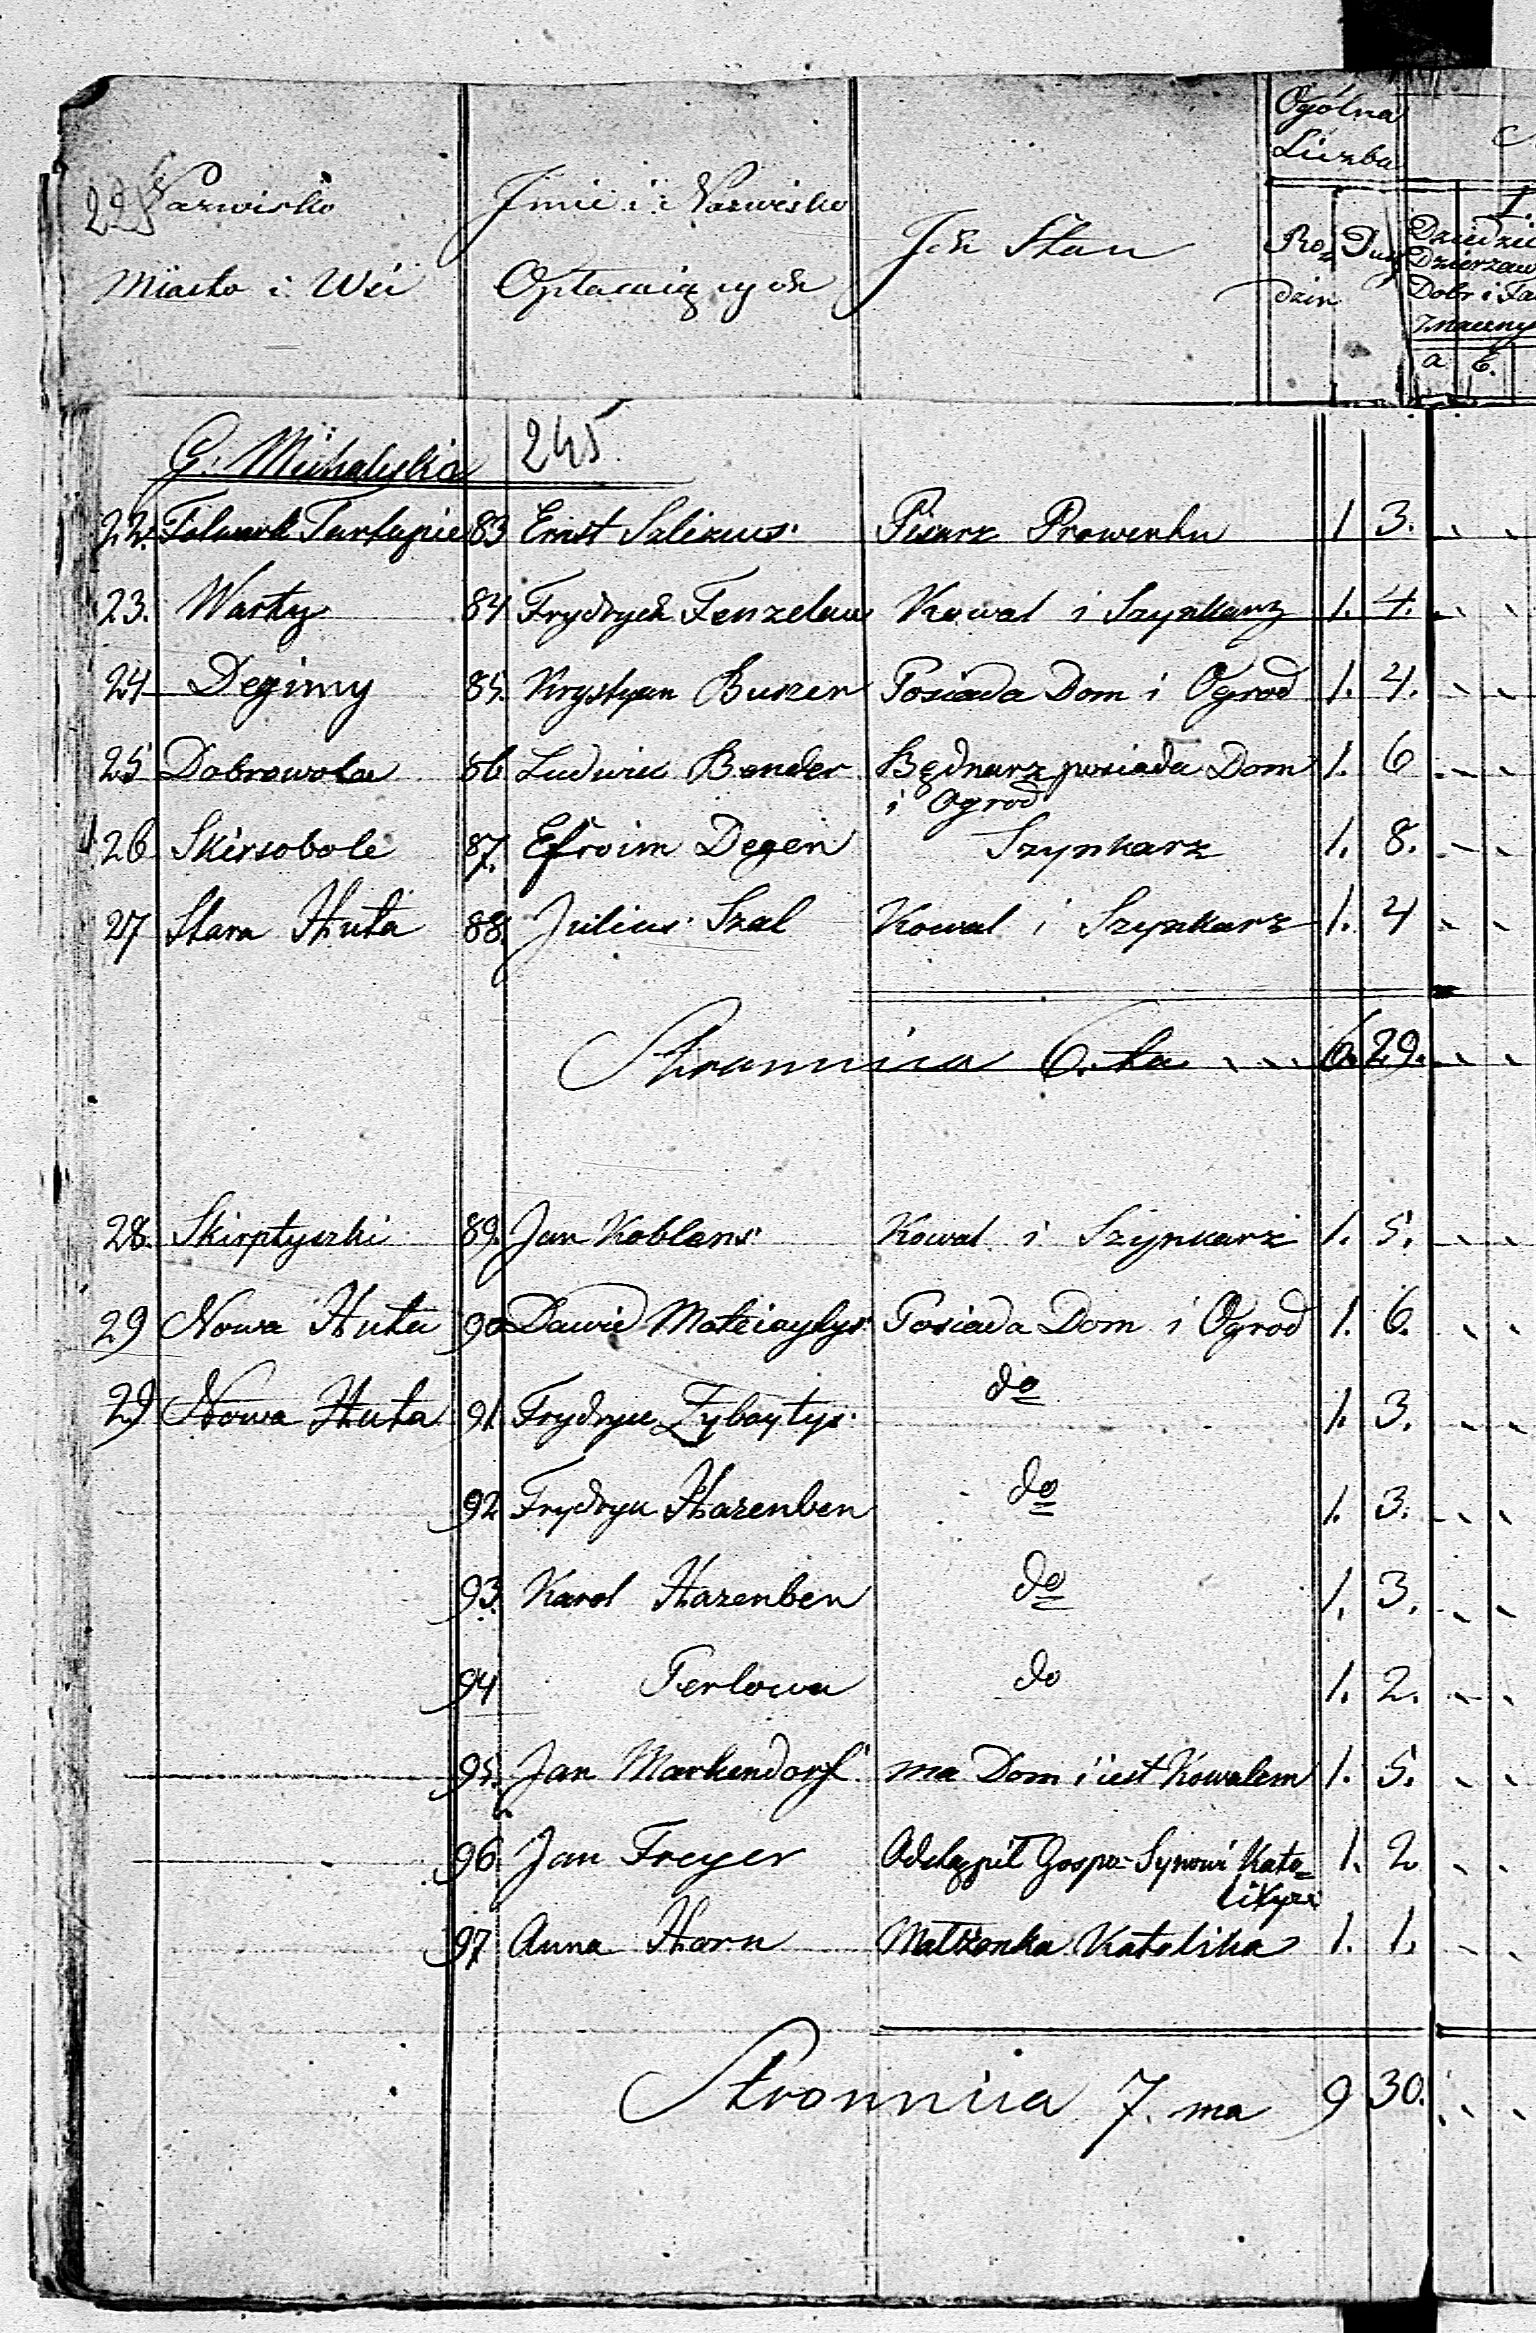 Nazwisko
Miasta i Wsi
Jmie i Nazwisko
Opłacaiących
Jch Stan
Ogólna
Liczba
Ro-
dzin
Dusz
I.
Dziedzic
Dzierzaw
Dobr i Fa
Znaczny
a b.
G. Michalyska 245
22. Folwark Turłapie 83 Ernst Szlizius Pisarz Prowentu 1 3.
23. Warty 84 Frydrych Fenzelau Kowal i Szynkarz 1. 4.
24 Degimy 85. Krystyan Burzer Posiada Dom i Ogrod 1. 4.
25 Dobrowola 86 Ludwik Bender Będnarz posiada Dom 1. 6
i Ogrod
26 Skirsobole 87. Efroim Degen Szynkarz 1. 8.
27 Stara Huta 88. Julius Szal Kowal i Szynkarz 1. 4
Stronnica 6. ta 6. 29.
28. Skirptyszki 89. Jan Koblens Kowal i Szynkarz 1. 5.
29 Nowa Huta 90 Dawid Mateiaytys Posiada Dom i Ogrod 1. 6.
29 Nowa Huta 91. Frydryk Zybaytys do 1. 3.
92 Frydryk Hazenben do 1. 3.
93. Karol Hazenben do 1. 3.
94 Perlowa do 1. 2.
95. Jan Markendorf ma Dom i iest Kowalem 1. 5.
96. Jan Freyer Odstąpił Gospo- Synowi Kato- 1. 2
likyzi
97 Anna Horn Małżonka Katolika 1. 1.
Stronnica 7. ma 9 30.